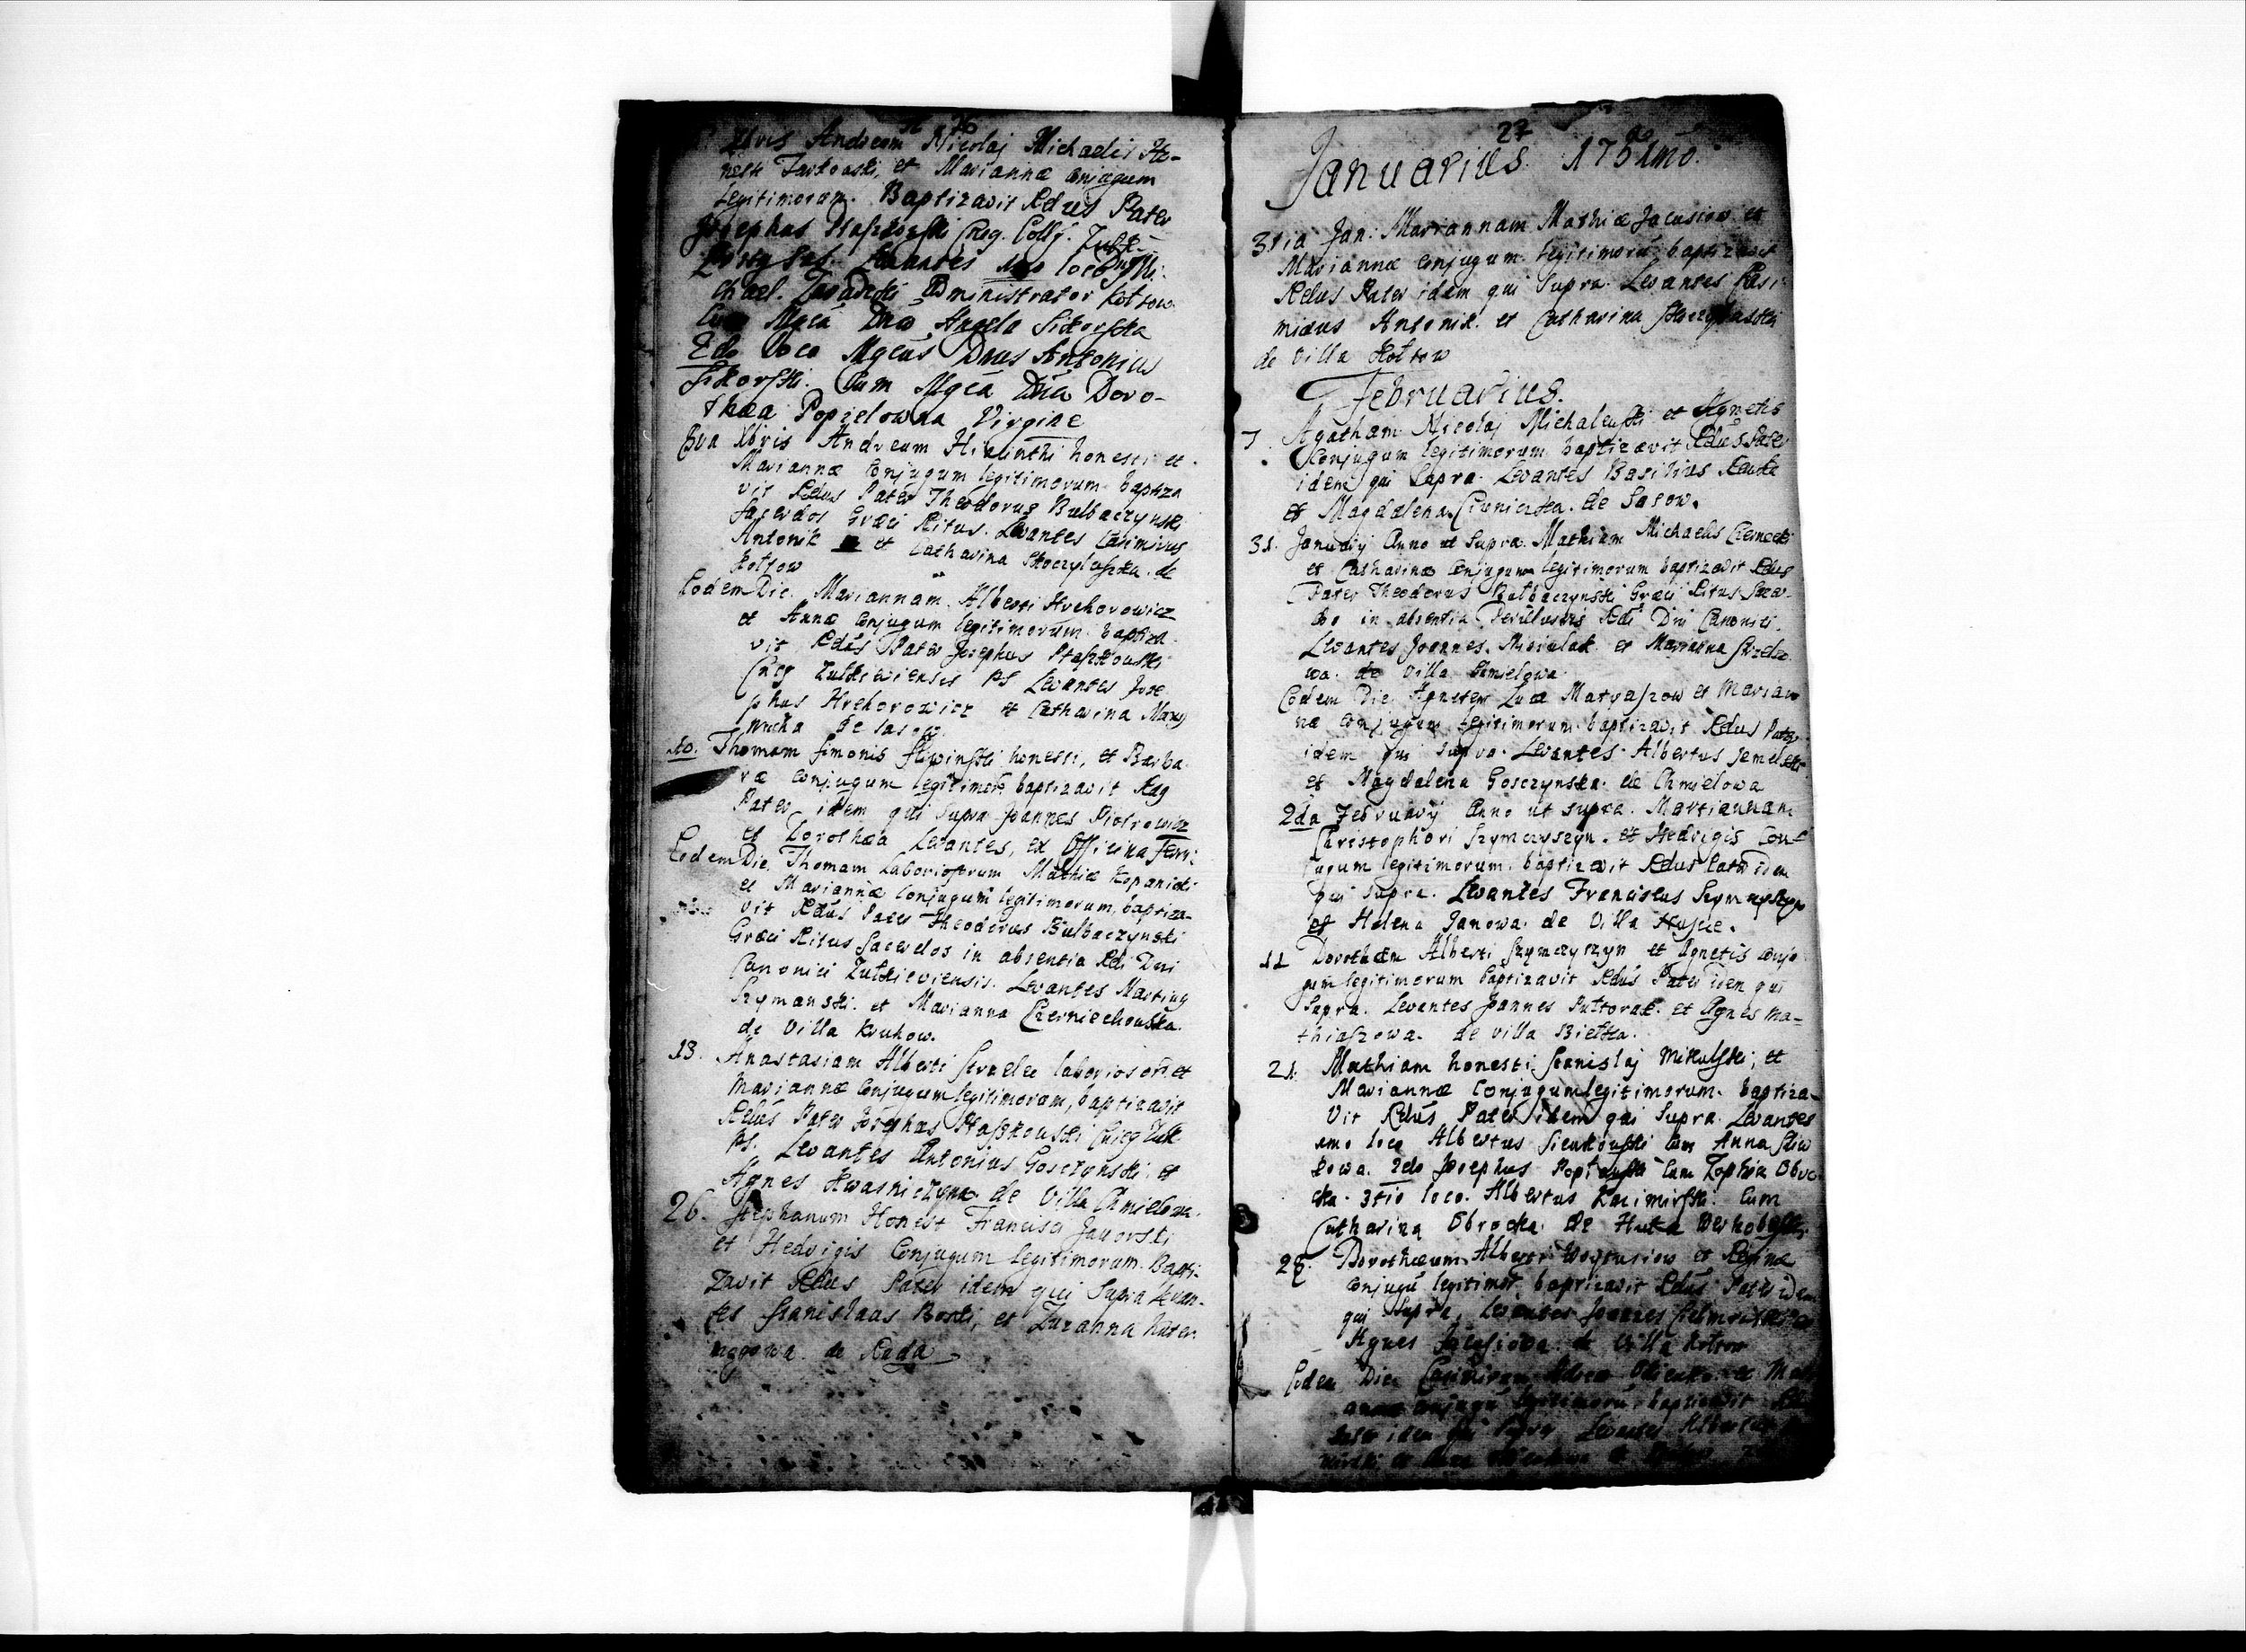 26
Xbris Andream Nicolaj Michaelis Ho-
neste Jarkowski, et Mariannæ Conjugum
Legitimorum. Baptizavit Rdus Pater
Josephus Staszkowski Cneg. Colg.
Levantes 1mo loco
chael. Zawadzki Administrator Kotsow
Cum Mgca Dna Angela Sikorska
2do loco Mgcus Dnus Antonius
Sikorski. Cum Mgca Dna Doro-
thæa Popielowna Virgine
8va Xbris Andream Hiacinthi honesti et
Mariannæ Conjugum legitimorum baptiza
vit Rdus Pater Theodorus Bulbaczynski
Sacerdos Græci Ritus. Levantes Casimirus
Antonik et Catharina Skoczylaszka. de
Kotsow
Eodem Die. Mariannam. Alberti Hrehorowicz
et Annæ Conjugum legitimorum baptiza
vit Rdus Pater Josephus Staszkowski
Cneg Zulkieviensis PS Levantes Jose
phus Hrehorowicz et Catharina Mary
nucha de Sasow
10. Thomam Simonis Sliwinski honesti, et Barba
ræ conjugum legitimor baptizavit
Pater idem qui Supra Joannes Piotrowicz
et Dorothæa Levantes, ex Officina Ferri
Eodem Die. Thomam Laboriosorum Mathiæ Kopanicki
et Mariannæ Conjugum legitimorum, baptiza-
vit Rdus Pater Theodorus Bulbaczynski
Græci Ritus Sacerdos in absentia Rdi Dni
Canonici Zulkieviensis. Levantes Martinus
Szymanski. et Marianna Czerniechowska.
de Villa Kruhow.
13. Anastasiam Alberti Strzelec laboriosori et
Mariannæ Conjugum legitimorum, baptizavit
Rdus Pater Josephus Staszkowski Cneg Zulk
PS. Levantes Antonius Gosczynski, et
Agnes Kwasniczyna de Villa Chmielowa.
26. Stephanum Honest Francisci Jaworski
et Hedvigis Conjugum legitimorum Bapti-
zavit Rdus Pater idem qui Supra Levan-
tes Stanislaus Boski, et Zuzanna
de Ruda
27
Januarius 1751mo.
31ia Jan: Mariannam Mathiæ Jacusiow et
Mariannæ Conjugum legitimoru baptizavit
Rdus Pater idem qui Supra. Levantes Casi-
mirus Antonik. et Catharina
de Villa Kotsow
Februarius.
7 Agatham Nicolaj Michalewski et Agnetis
Conjugum legitimorum baptizavit Rdus Pater
idem qui Supra. Levantes Basilius
et Magdalena. de Sasow.
31. Januarij Anno ut Supra. Mathiam Michaelis Czernecki
et Catharinæ Conjugum legitimorum baptizavit Rdus
Pater Theodorus Bulbaczynski Græci Ritus
in absentia Rdi Dni Canonici.
Levantes Joannes. Misiulak et Marianna Strzelco
wa. de Villa Hmielowa
Eodem Die Agnetem Lucæ Matyaszow et Marian
næ Conjugum legitimorum baptizavit Rdus Pater
idem qui supra. Levantes. Albertus
et Magdalena Gosczynska. de Chmielowa
2da Februarij Anno ut supra. Mariannam
Christophori Szymczyszyn. et Hedvigis Con-
jugum legitimorum. baptizavit Rdus Pater idem
qui Supra. Levantes Franciscus Szymczyszyn
et Helena Janowa. de Villa Huszcze.
11 Dorotheam Alberti Szymczyszyn et Agnetis conju
gum legitimorum baptizavit Rdus Pater idem qui
Supra. Levantes Joannes Puttorak. et Agnes Ma-
thiaszowa. de Villa Bielka.
21. Mathiam honesti Stanislaj Mikulski, et
Mariannæ Conjugum legitimorum. baptiza-
vit Rdus Pater idem qui Supra. Levantes
1mo loco Albertus Sienkowski Cum Anna Sliw
kowa. 2do Josephus Cum Zophia Obro-
cka. 3tio loco. Albertus Kazimirski. Cum
Catharina Obrocka. de Huta Werhobuska
28. Dorotheam Alberti Woytusiow et Reginæ
Conjugu legitimor. baptizavit Rdus Pater idem
qui Supra, Levantes Joannes et
Agnes Jacusiowa de Villa Kotsow
Eodem Die Casimirum et Mari
annæ Conjugu legitimoru baptizavit
Pater idem qui Supra Levantes Albertus